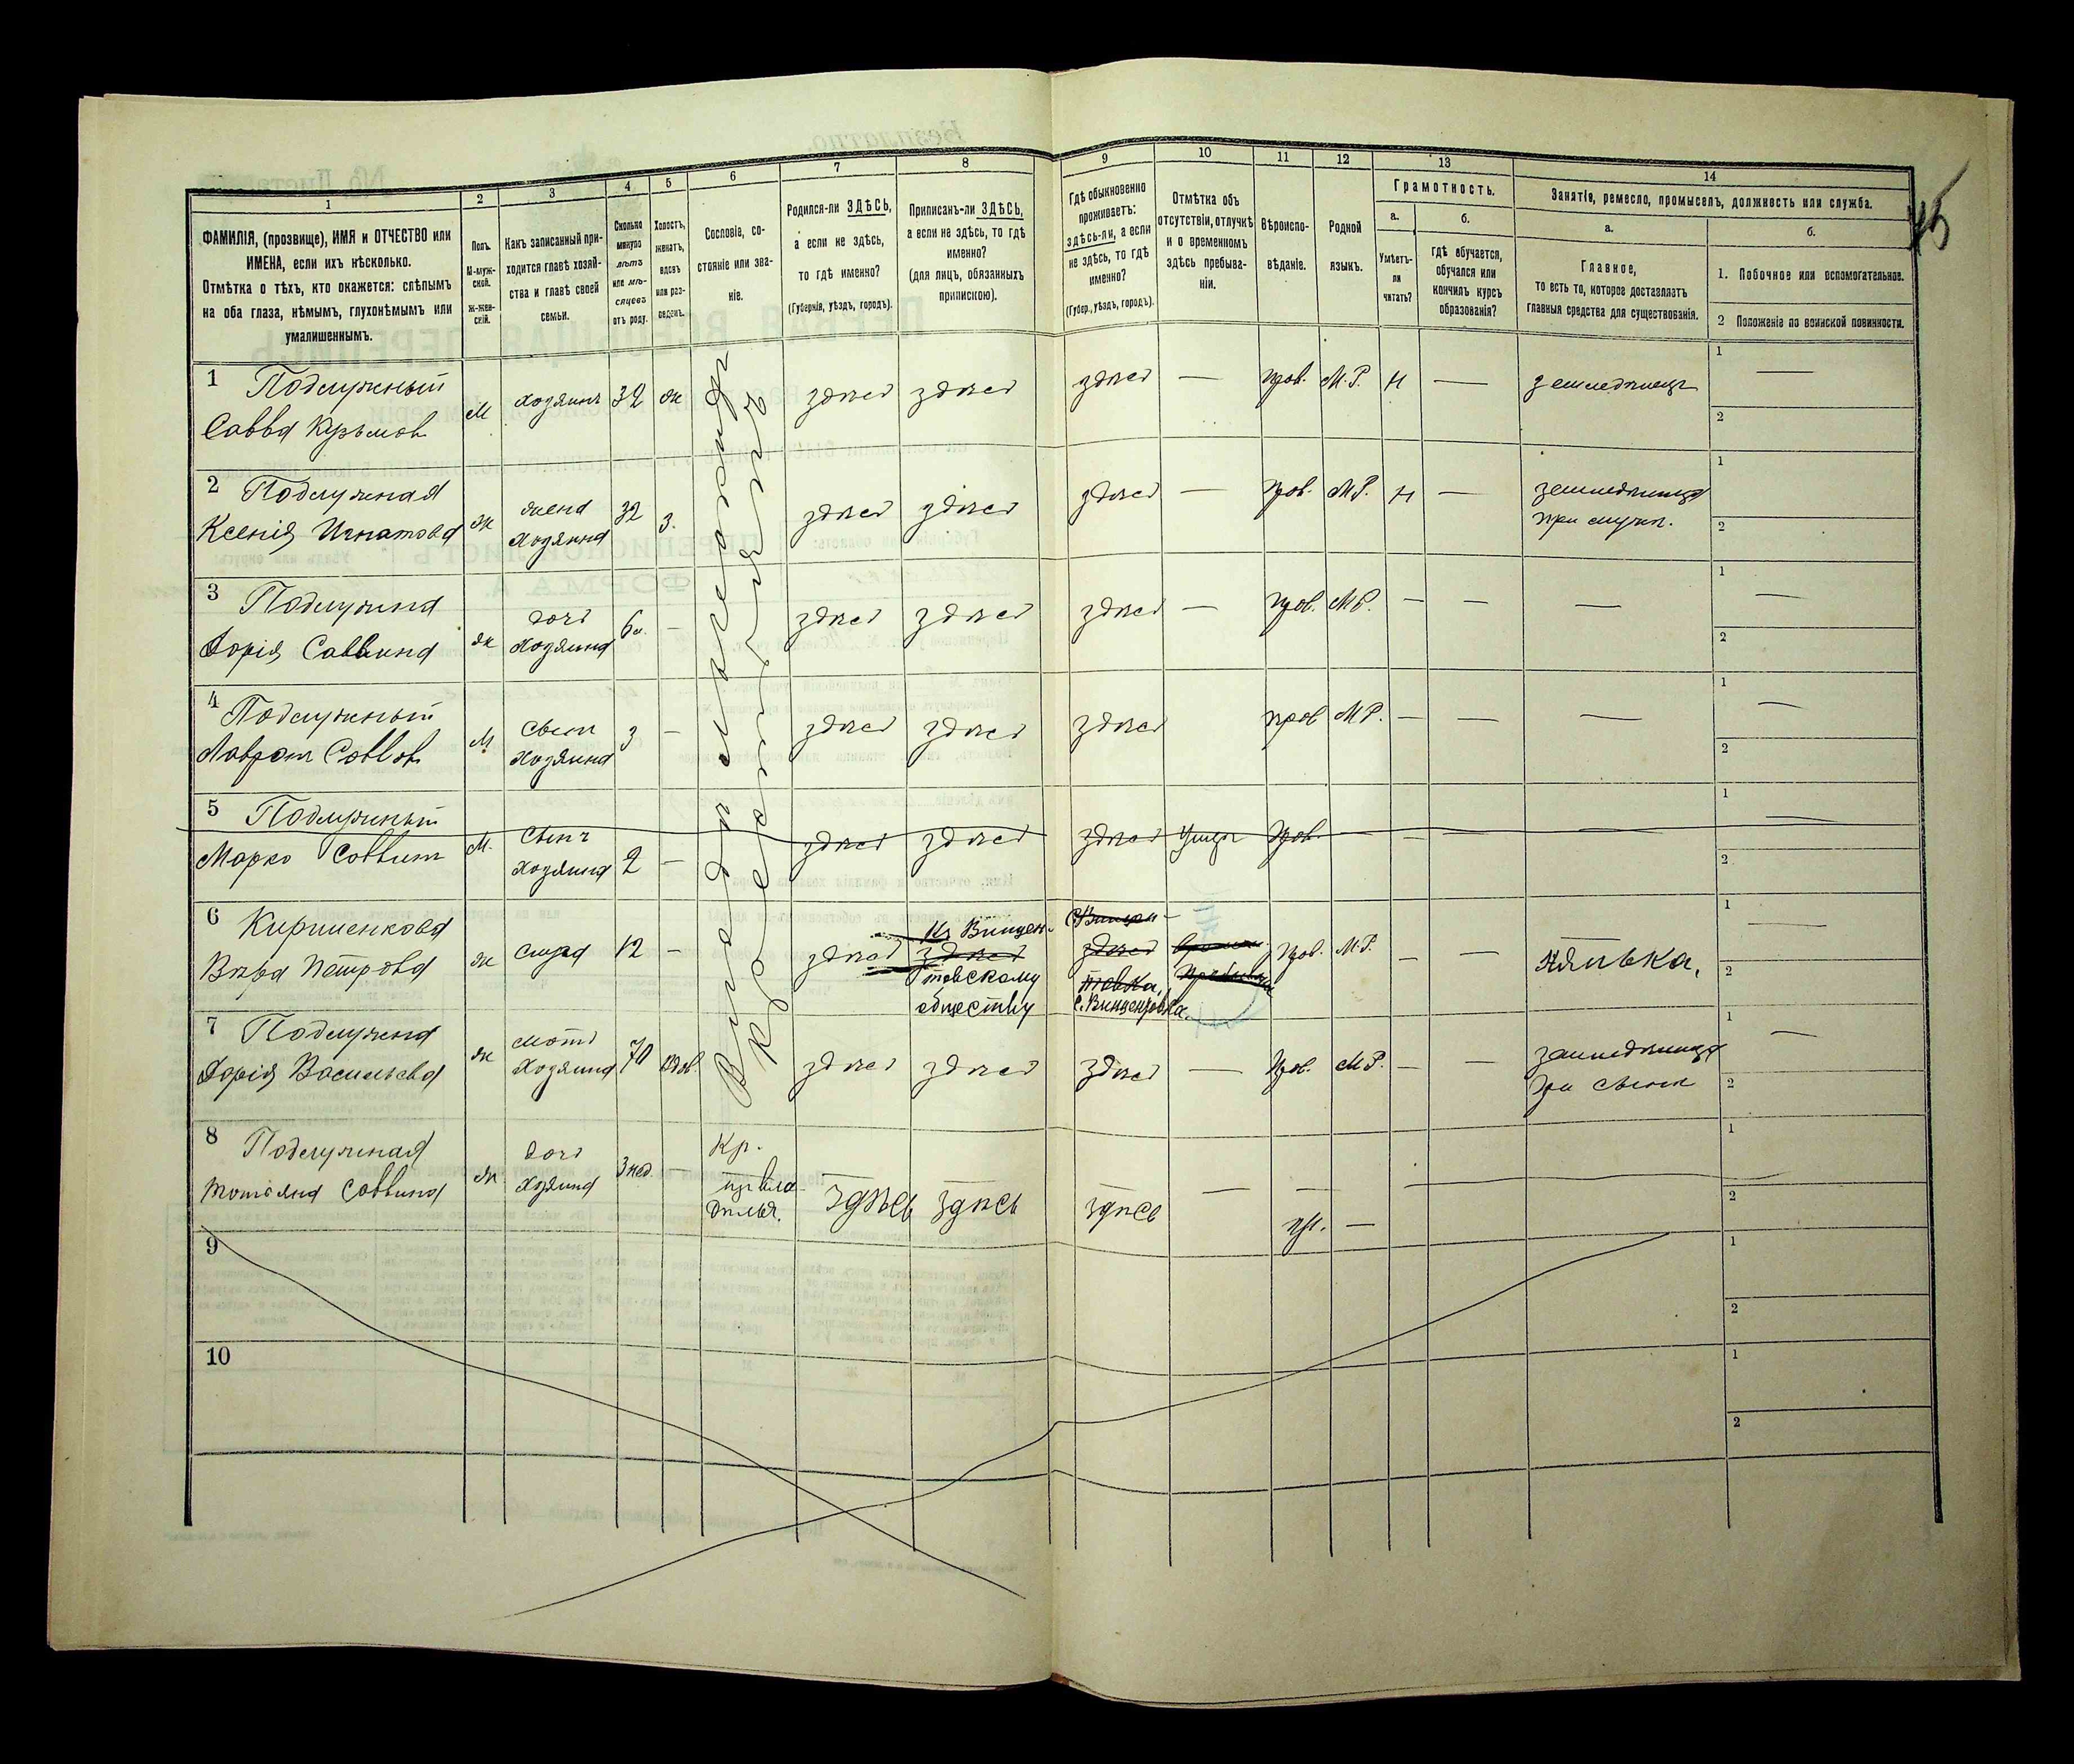 45
1
2
3
4
5
6
7
8
9
10
11
12
13
14
ФАМИЛІЯ, (прозвище), ИМЯ и ОТЧЕСТВО или
ИМЕНА, если ихъ нѣсколько.
Отмѣтка о тѣхъ, кто окажется: слѣпымъ
на оба глаза, нѣмымъ, глухонѣмымъ или
умалишеннымъ.
Полъ.
М-муж-
ской.
Ж-жен-
скій.
Какъ записанный при-
ходится главѣ хозяй-
ства и главѣ своей
семьи.
Сколько
минуло
лѣтъ
или мѣ-
сяцевъ
отъ роду.
Холостъ,
женатъ,
вдовъ
или раз-
веденъ.
Сословіе, со-
стояніе или зва-
ніе.
Родился-ли ЗДѢСЬ,
а если не здѣсь,
то гдѣ именно?
(Губернія, уѣздъ, городъ).
Приписанъ-ли ЗДѢСЬ,
а если не здѣсь, то гдѣ
именно?
(для лицъ, обязанныхъ
припискою).
Гдѣ обыкновенно
проживаетъ:
здѣсь-ли, а если
не здѣсь, то гдѣ
именно?
(Губер., уѣздъ, городъ).
Отмѣтка объ
отсутствіи, отлучкѣ
и о временномъ
здѣсь пребыва-
ніи.
Вѣроиспо-
вѣданіе.
Родной
языкъ.
Грамотность.
а.
Умѣетъ-
ли
читать?
б.
Гдѣ обучается,
обучался или
кончилъ курсъ
образованія?
Занятіе, ремесло, промыселъ, должность или служба.
а.
Главное,
то есть то, которое доставляетъ
главныя средства для существованія.
б.
1. Побочное или вспомогательное.
2 Положеніе по воинской повинности.
Владѣльческій
1 Подлужный
Савва Кузьмов
М хозяинъ 32 ж здѣсь здѣсь здѣсь — Прав. М.Р. Н — земледѣлецъ
1 —
2
2 Подлужная
Ксенія Игнатова
ж жена
хозяина
32 з. здѣсь здѣсь здѣсь — Прав. М.Р. Н — земледѣлица
при мужѣ.
1
2
3 Подлужна
Дарія Саввина
ж дочь
хозяина
6 — здѣсь здѣсь здѣсь — Прав. М.Р. — — —
1 —
2
4 Подлужный
Лаврѣн Саввов
М сынъ
хозяина
3 — здѣсь здѣсь здѣсь прав М.Р. — — —
1 —
2
5 Подлужный
Марко Саввинъ
М. Сынъ
хозяина
2 — здѣсь здѣсь здѣсь Умеръ Прав. — — — —
1 —
2
6 Кириченкова
Вѣра Петрова
ж слуга 12 — здѣсь
Къ Винцен-
здѣсь
товскому
обществу
здѣсь
товка,
с. Винцентовка.
Прав. М.Р. — — нянька,
1 —
2
7 Подлужна
Дарія Васильева
ж мать
хозяина
70 вдов. здѣсь здѣсь здѣсь — Прав. М.Р. — — земледѣлица
при сынѣ
1 —
2
8 Подлужная
Татьяна Саввина
ж дочь
хозяина
3 нед. —
Кр.
из влад
дѣльч.
здѣсь здѣсь здѣсь — — пр. —
1
2
9
1
2
10
1
2